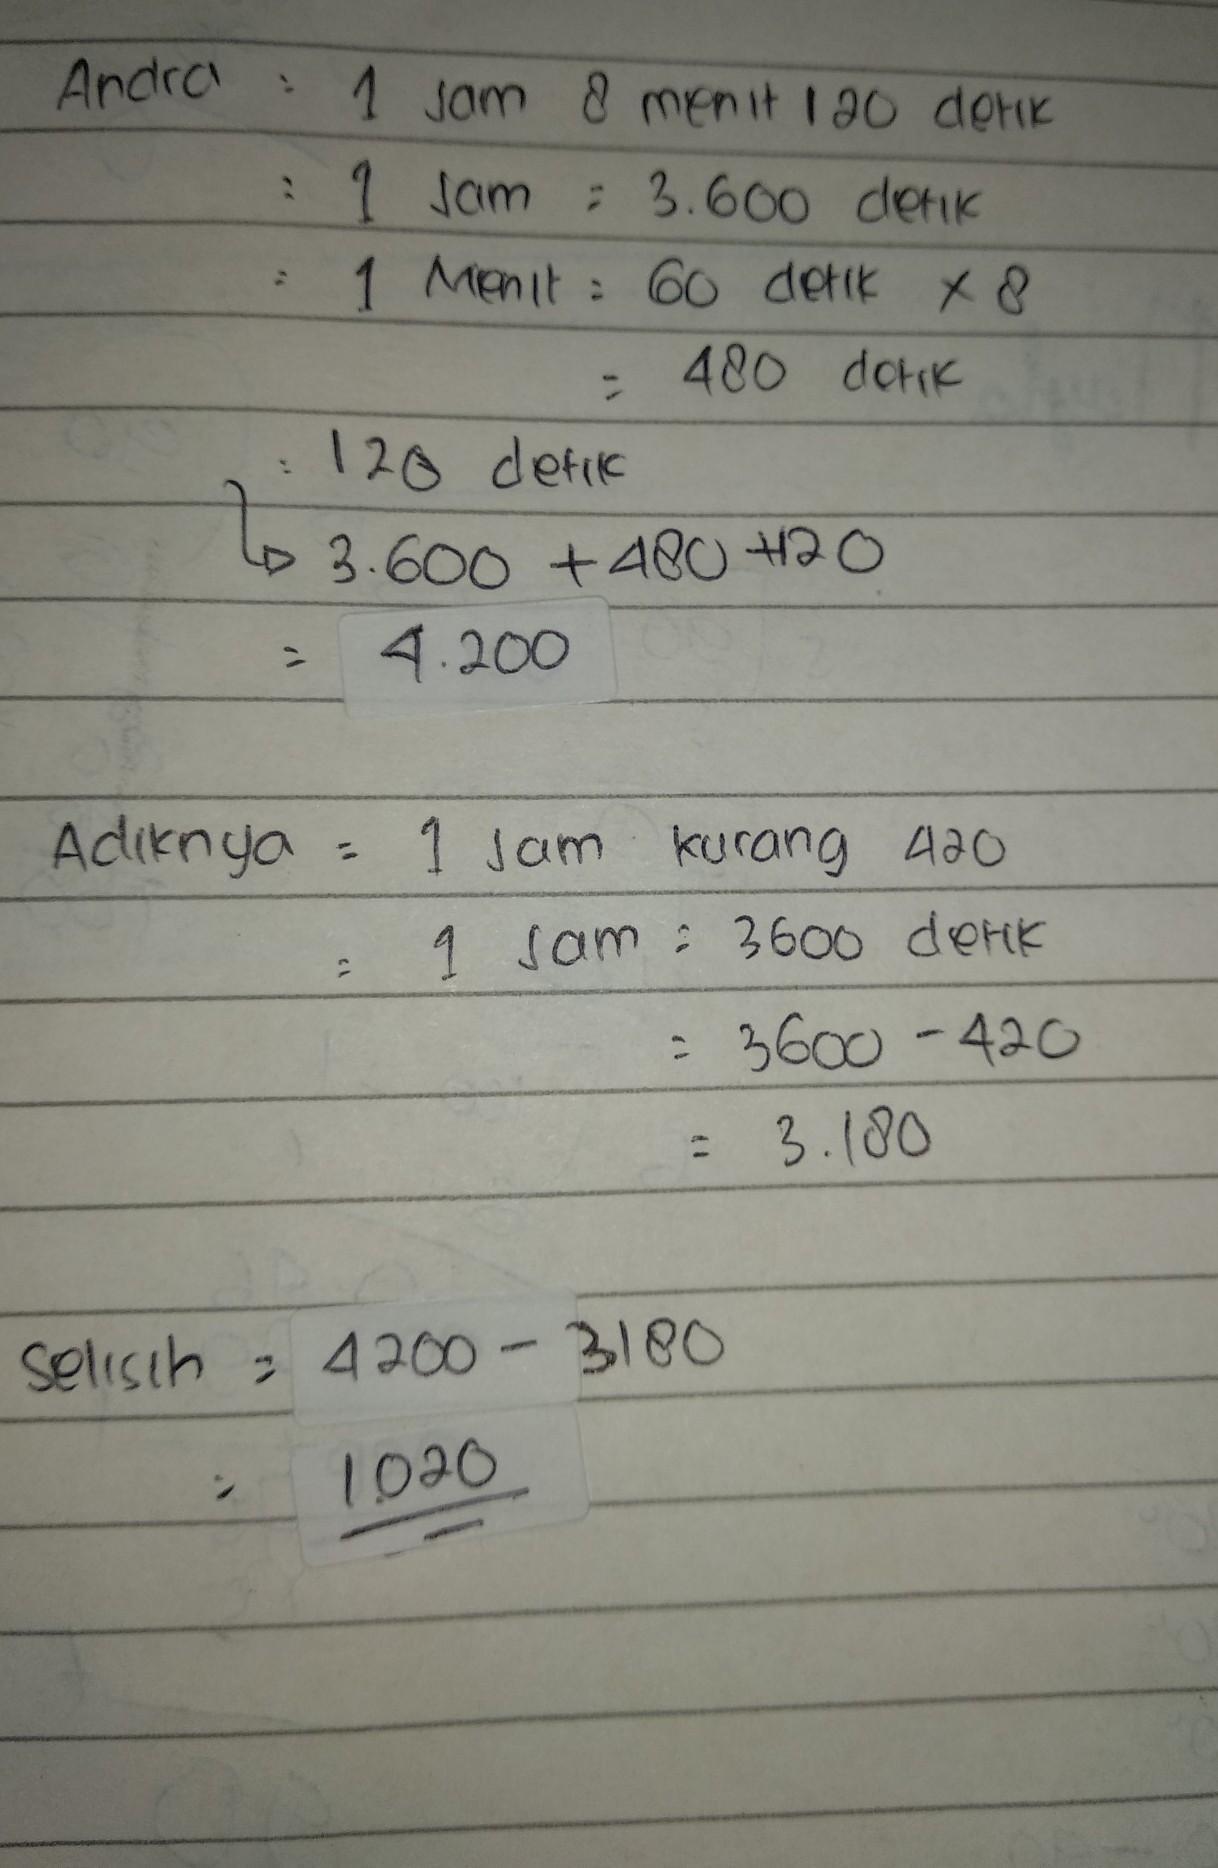 Andra : 1 Jam 8 menit 120 detik
: 1 Jam = 3.600 detik
: 1 Menit = 60 detik x 8
= 480 detik
: 120 detik
↳ 3.600 + 480 + 120
= 4.200
Adiknya = 1 Jam kurang 420
= 1 Jam = 3600 detik
= 3600 - 420
= 3.180
Selisih = 4200 - 3180
= 1.020